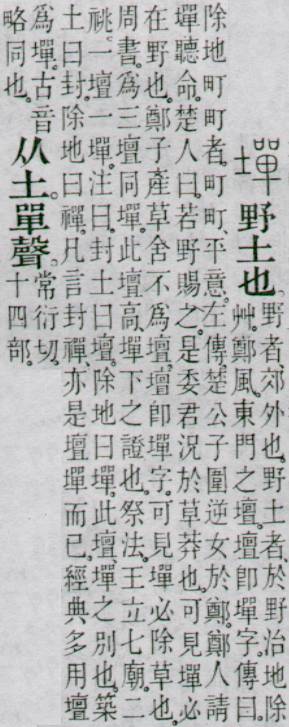 墠 野土也。野者、郊外也。野土者、於野治地除
艸。鄭風。東門之壇。壇卽墠字。傳曰。
除地町町者。町町、平意。左傳楚公子圍逆女於鄭。鄭人請
墠聽命。楚人曰。若野賜之。是委君況於草莽也。可見墠必
在野也。鄭子產草舍不爲壇。壇卽墠字。可見墠必除草也。
周書。爲三壇同墠。此壇高墠下之證也。祭法。王立七廟。二
祧一壇一墠。注曰。封土曰壇。除地曰墠。此壇、墠之別也。築
土曰封。除地曰禪。凡言封禪、亦是壇墠而已。經典多用壇
爲墠。古音
略同也。
从土。單聲。常衍切。
十四部。